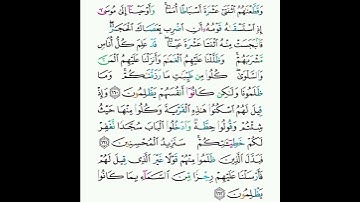 وَقَطَّعْنَٰهُمُ ٱثْنَتَىْ عَشْرَةَ أَسْبَاطًا أُمَمًا ۚ وَأَوْحَيْنَآ إِلَىٰ مُوسَىٰٓ
إِذِ ٱسْتَسْقَىٰهُ قَوْمُهُۥٓ أَنِ ٱضْرِب بِّعَصَاكَ ٱلْحَجَرَ ۖ
فَٱنۢبَجَسَتْ مِنْهُ ٱثْنَتَا عَشْرَةَ عَيْنًا ۖ قَدْ عَلِمَ كُلُّ أُنَاسٍ
مَّشْرَبَهُمْ ۚ وَظَلَّلْنَا عَلَيْهِمُ ٱلْغَمَٰمَ وَأَنزَلْنَا عَلَيْهِمُ ٱلْمَنَّ
وَٱلسَّلْوَىٰ ۖ كُلُوا۟ مِن طَيِّبَٰتِ مَا رَزَقْنَٰكُمْ ۚ وَمَا
ظَلَمُونَا وَلَٰكِن كَانُوٓا۟ أَنفُسَهُمْ يَظْلِمُونَ ﴿١٦٠﴾ وَإِذْ
قِيلَ لَهُمُ ٱسْكُنُوا۟ هَٰذِهِ ٱلْقَرْيَةَ وَكُلُوا۟ مِنْهَا حَيْثُ
شِئْتُمْ وَقُولُوا۟ حِطَّةٌ وَٱدْخُلُوا۟ ٱلْبَابَ سُجَّدًا نَّغْفِرْ
لَكُمْ خَطِيٓـَٰٔتِكُمْ ۚ سَنَزِيدُ ٱلْمُحْسِنِينَ ﴿١٦١﴾
فَبَدَّلَ ٱلَّذِينَ ظَلَمُوا۟ مِنْهُمْ قَوْلًا غَيْرَ ٱلَّذِى قِيلَ لَهُمْ
فَأَرْسَلْنَا عَلَيْهِمْ رِجْزًا مِّنَ ٱلسَّمَآءِ بِمَا كَانُوا۟
يَظْلِمُونَ ﴿١٦٢﴾